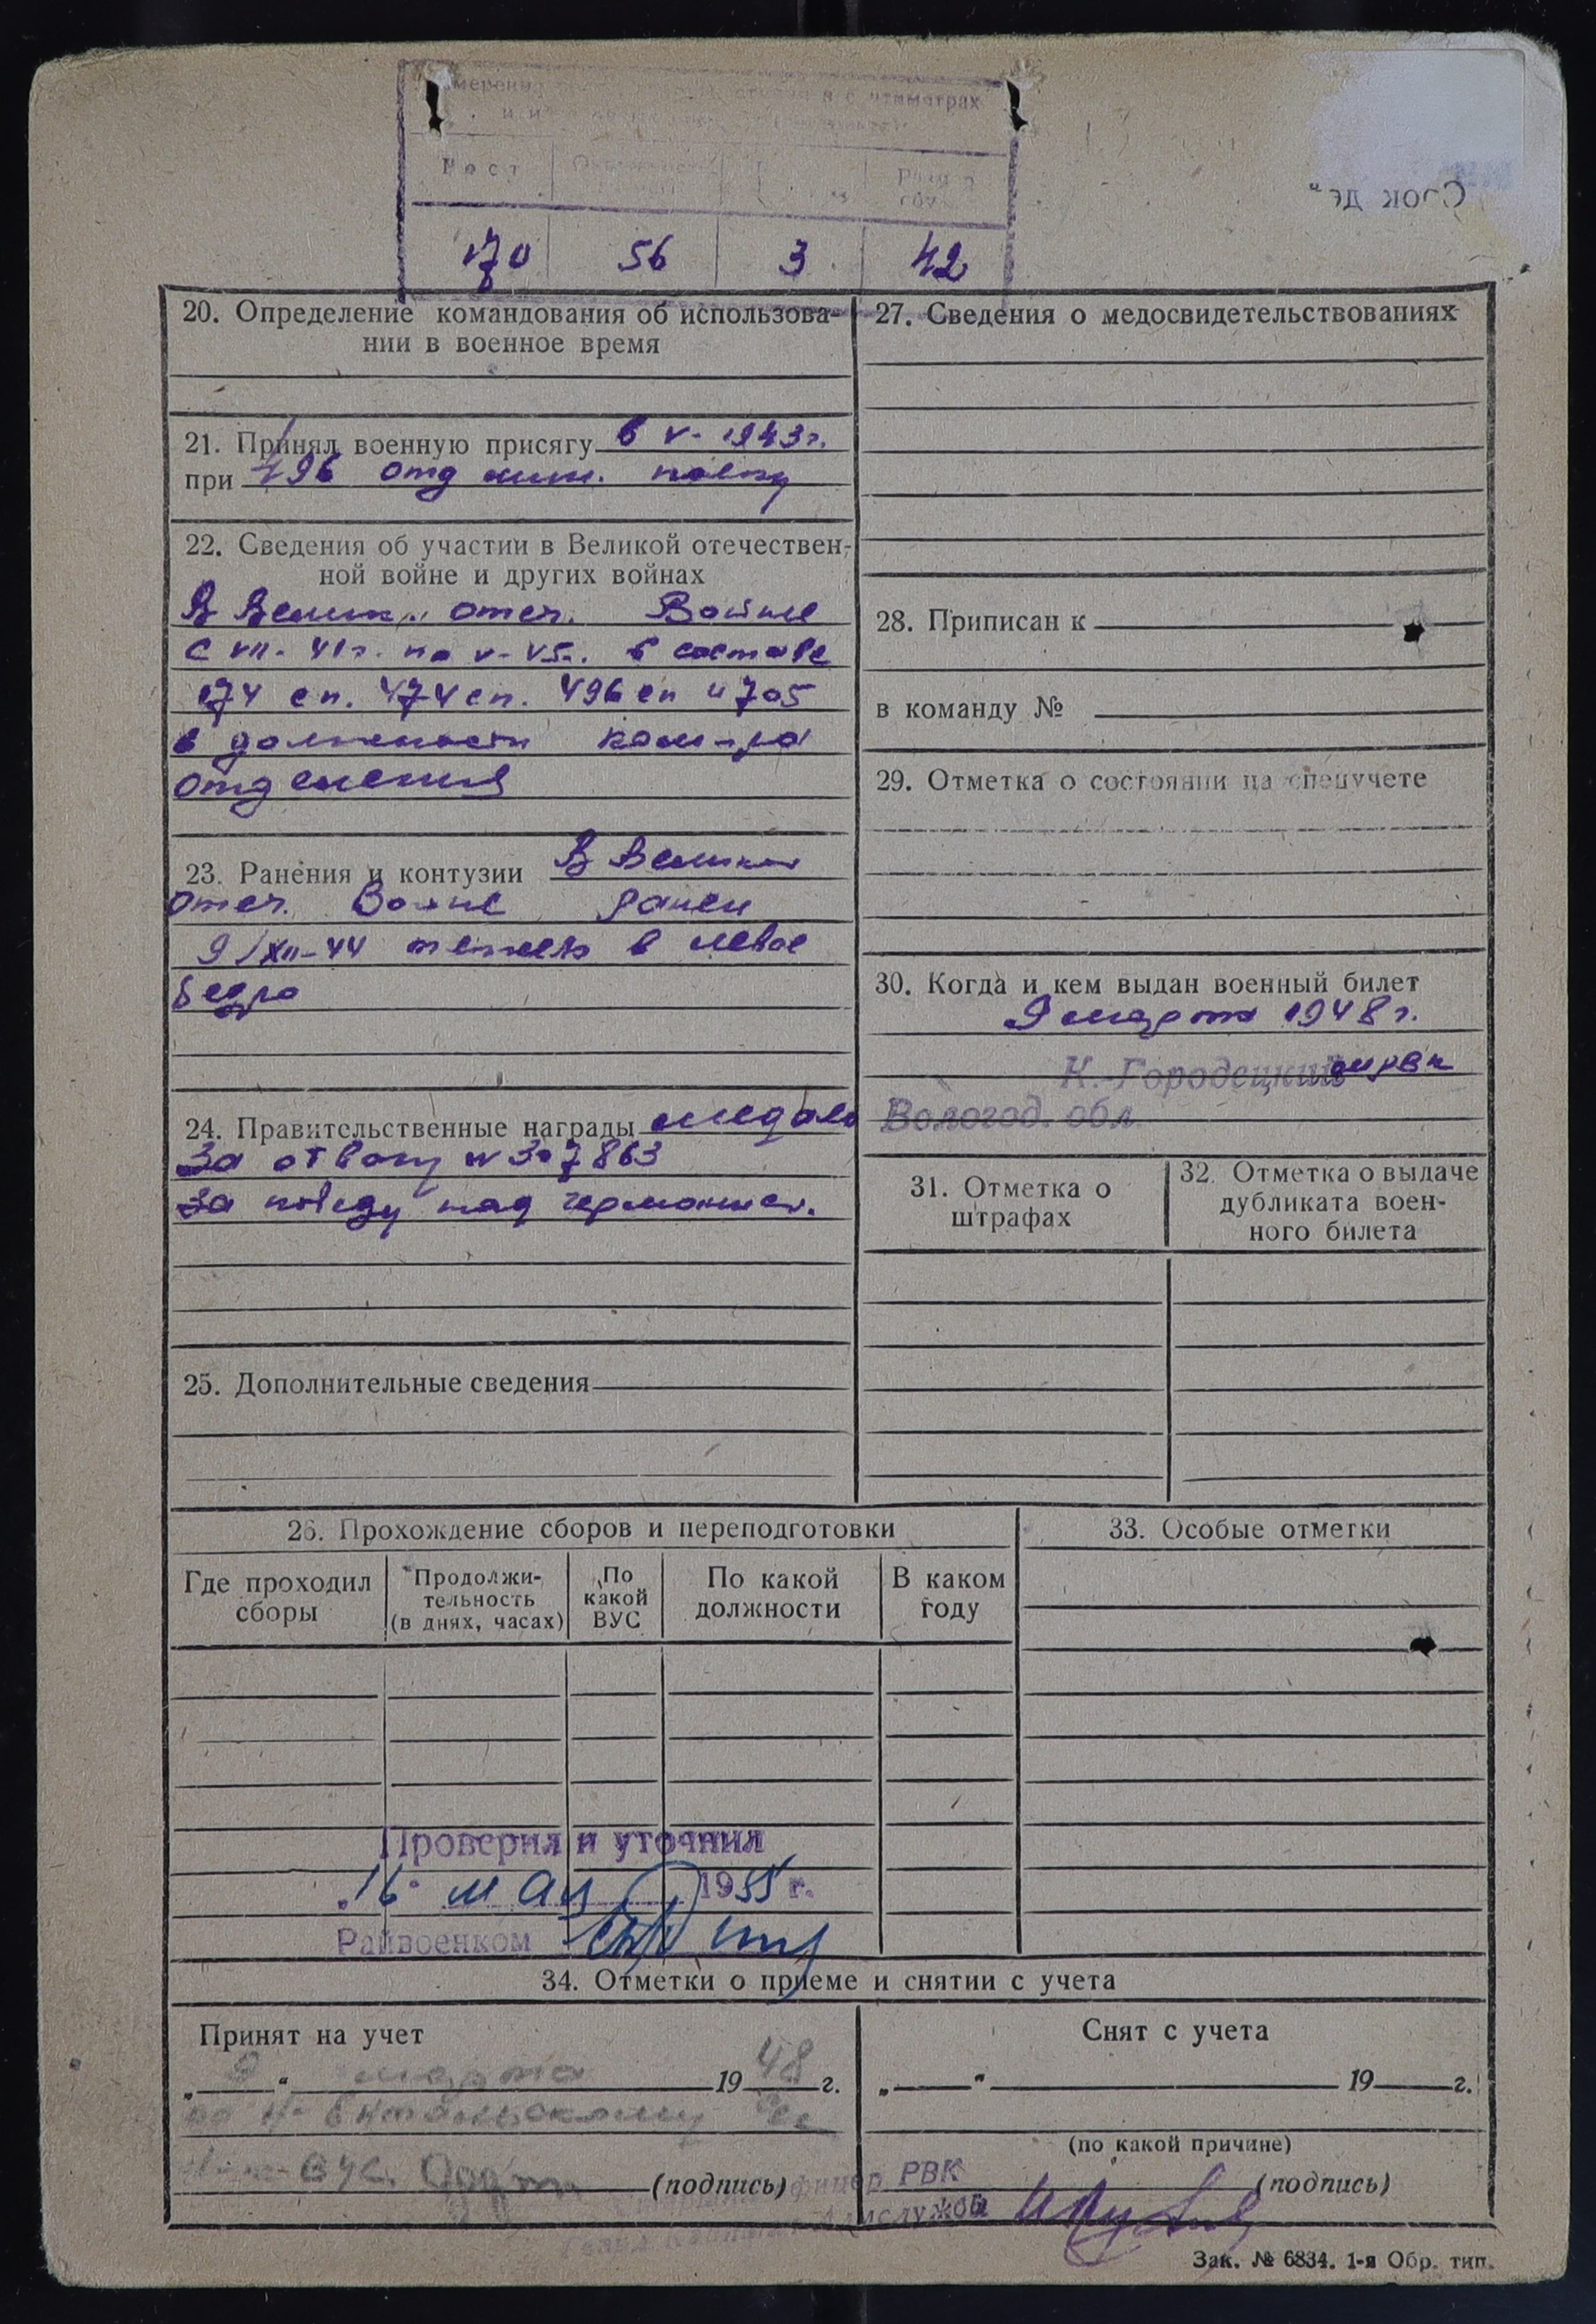 в с нтиметрах
Рост
170 56 3 42
20. Определение командования об использова-
нии в военное время
21. Принял военную присягу в V- 1943г.
при 496 отд полку
22. Сведения об участии в Великой отечествен-
ной войне и других войнах
В Велик. отеч. Войне
с VII- 41г. по V- 45г. в составе
174 сп. 474 сп. 496 сп и 705
в должности ком-ра
отделения
23. Ранения и контузии В Велик
Отеч. Войне ранен
9/XII-44 тяжело в левое
бедро
24. Правительственные награды медаль
За отвагу № 307863
За победу над германией.
25. Дополнительные сведения
26. Прохождение сборов и переподготовки
Где проходил
сборы
Продолжи-
тельность
(в днях, часах)
По
какой
ВУС
По какой
должности
В каком
году
Проверил и уточнил
„16" мая 1955 г.
Райвоенком
27. Сведения о медосвидетельствованиях
28. Приписан к
в команду №
29. Отметка о состоянии на спецучете
30. Когда и кем выдан военный билет
9 марта 1948 г.
К.-Городецкий рвк
Вологод. обл.
31. Отметка о
штрафах
32. Отметка о выдаче
дубликата воен-
ного билета
33. Особые отметки
34. Отметки о приеме и снятии с учета
Принят на учет
„ 9 " марта 19 48 г.
(подпись)
Снят с учета
„ " 19 г.
(по какой причине)
(подпись)
РВК
Зак. № 6834. 1-я Обр. тип.